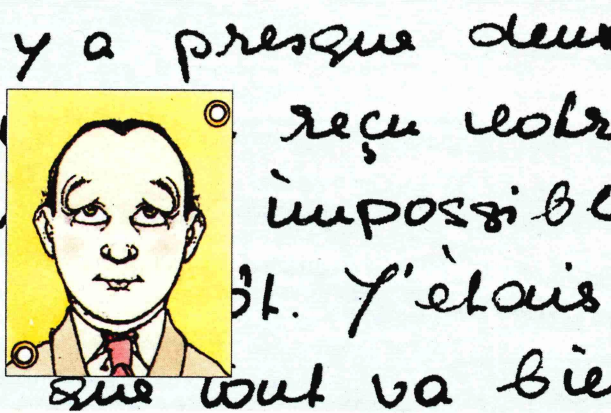 y a presque deux
reçu votr
impossibl
ôt. J'étais
que tout va bie